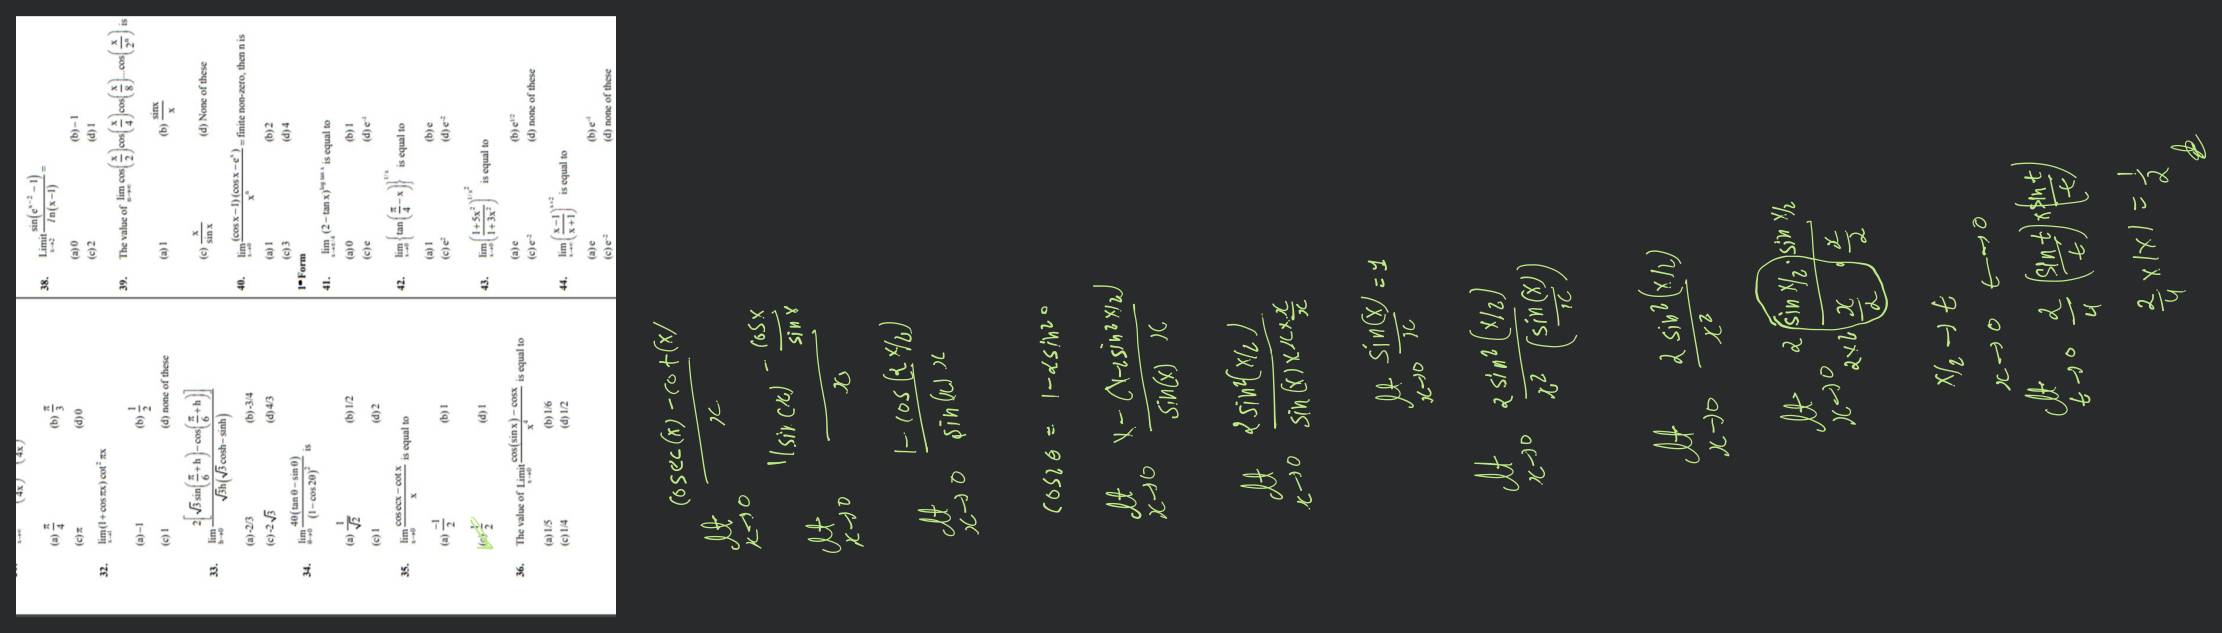 32. lim (1 + cos πx) cot² πx
x→1
(a) –1 (b) 1/2
(c) 1 (d) none of these
33. lim 2[√3 sin(π/6 + h) – cos(π/6 + h)] / √3h(√3 cosh – sinh)
h→0
(a) -2/3 (b) -3/4
(c) -2√3 (d) 4/3
34. lim 4θ(tan θ – sin θ) / (1 – cos 2θ)² is
θ→0
(a) 1/√2 (b) 1/2
(c) 1 (d) 2
35. lim cosecx – cot x / x is equal to
x→0
(a) –1/2 (b) 1
(c) 1/2 (d) 1
36. The value of Limit cos(sin x) – cosx / x⁴ is equal to
x→0
(a) 1/5 (b) 1/6
(c) 1/4 (d) 1/2
(a) π/4 (b) π/3
(c) π (d) 0
38. Limit sin(eˣ⁻² – 1) / ln(x – 1) =
x→2
(a) 0 (b) – 1
(c) 2 (d) 1
39. The value of lim cos(x/2) cos(x/4) cos(x/8)...cos(x/2ⁿ) is
n→∞
(a) 1 (b) sinx/x
(c) x/sin x (d) None of these
40. lim (cos x – 1)(cos x – eˣ) / xⁿ = finite non-zero, then n is
x→0
(a) 1 (b) 2
(c) 3 (d) 4
1^∞ Form
41. (2 – tan x) is equal to
(a) 0 (b) 1
(c) e (d) e⁻¹
42. lim {tan(π/4 – x)}^1/x is equal to
x→0
(a) 1 (b) e
(c) e² (d) e⁻²
43. lim (1 + 5x² / 1 + 3x²)^1/x² is equal to
x→0
(a) e (b) e^1/2
(c) e⁻² (d) none of these
44. lim (x – 1 / x + 1)^x+2 is equal to
x→∞
(a) e (b) e⁻¹
(c) e⁻² (d) none of these
lt cosec(x) – cot(x) / x
x→0
lt 1/sin(x) – cosx/sinx / x
x→0
lt 1 – cos(2x/2) / sin(x) x
x→0
cos2θ = 1 – 2sin²θ
lt 1 – (1–2sin²x/2) / sin(x) x
x→0
lt 2sin²(x/2) / sin(x) × x × x/x
x→0
lt sin(x)/x = 1
x→0
lt 2 sin²(x/2) / x² (sin(x)/x)
x→0
lt 2 sin²(x/2) / x²
x→0
lt 2 sin x/2 · sin x/2 / 2×2 x/2 · x/2
x→0
x/2 → t
x→0 t→0
lt 2/4 (sint/t) × (sint/t)
t→0
2/4 × 1 × 1 = 1/2